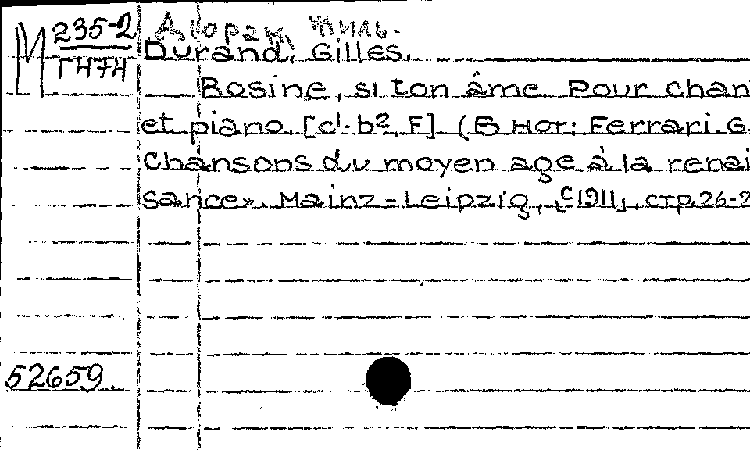 М 235-2
Дюран, Жиль.
ГН7Н
Durand, Gilles.
Rosine, si ton âme Pour chan
et piano. [c¹-b², F] (В нот: Ferrari. G.
Chansons du moyen age à la renai
sance». Mainz - Leipzig, [c1911], стр. 26-2
52659.